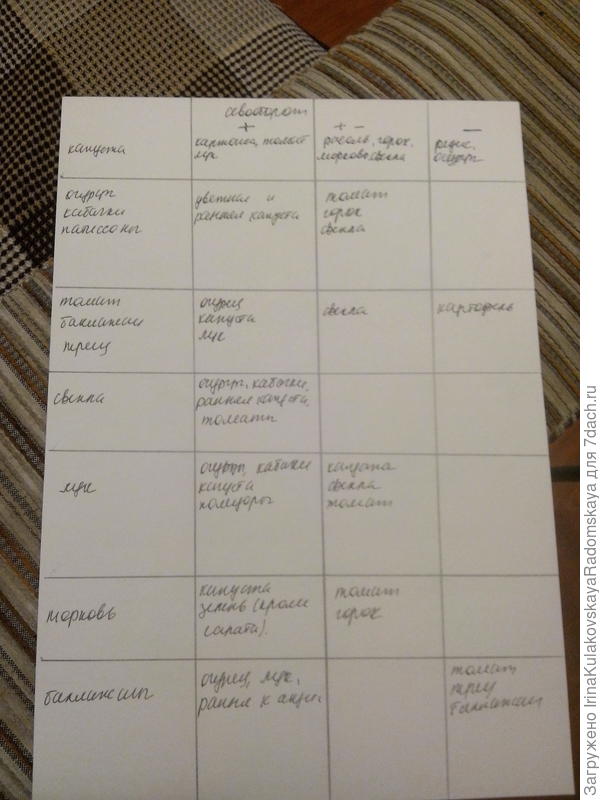 севооборот
капуста
+
картошка, томат
лук
+ -
фасоль, горох,
морковь свекла
-
редис,
огурцы
огурцы
кабачки
патиссоны
цветная и
ранняя капуста
томат
горох
свекла
томат
баклажаны
перец
огурец
капуста
лук
свекла
картофель
свекла
огурцы, кабачки,
ранняя капуста,
томаты
лук
огурцы, кабачки
капуста
помидоры
капуста
свекла
томат
морковь
капуста
зелень (кроме
салата).
томат
горох
баклажаны
огурец, лук,
ранняя капуста
томат
перец
баклажаны
Загружено IrinaKulakovskayaRadomskaya для 7dach.ru